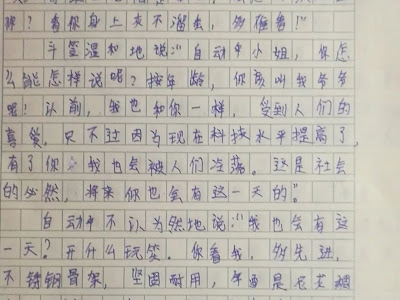 ？看你身上灰不溜，多难看！”
斗笠温和地说：“自动伞小姐，你怎
么能怎样说呢？按年龄，你该叫我爷爷
呢！认前，我也和你一样，受到人们的
尊敬，只不过因为现在科技水平提高了，
有了你，我也会被人们冷落。这是社会
的必然，将来你也会有这一天的。”
自动伞不认为然地说：“我也会有这
一天？开什么玩笑。你看我，多先进，
不锈钢骨架，坚固耐用，伞面是尼龙绸